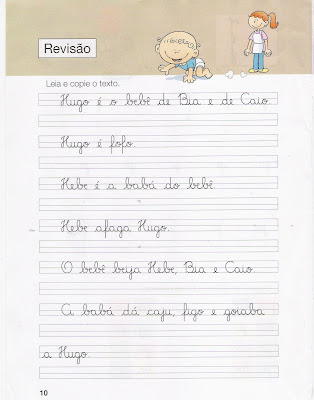 Revisão
Leia e copie o texto.
Hugo é o bebê de Bia e de Caio.
Hugo é fofo.
Hebe é a babá do bebê.
Hebe afaga Hugo.
O bebê beija Hebe, Bia e Caio.
A babá dá caju, figo e goiaba
a Hugo.
10